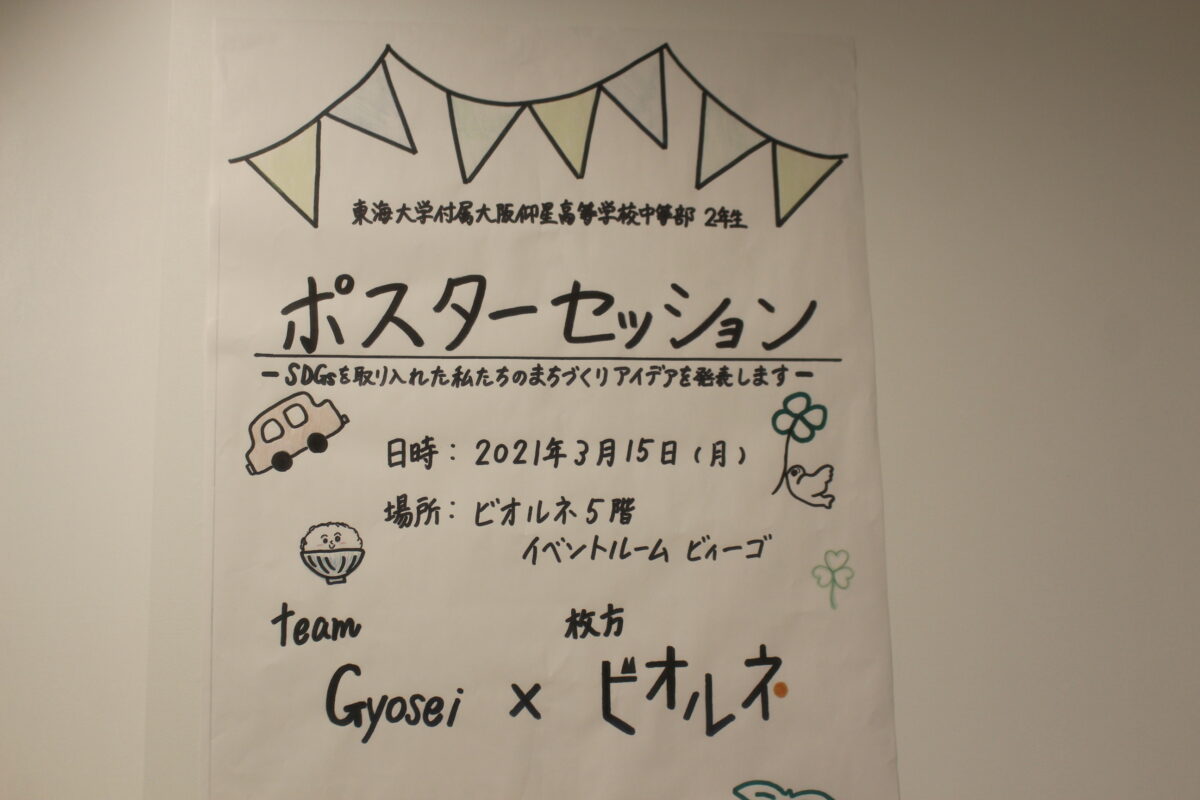 東海大学付属大阪仰星高等学校中等部 2年生
ポスターセッション
ーSDGsを取り入れた私たちのまちづくりアイデアを発表しますー
日時：2021年3月15日（月）
場所：ビオルネ5階
イベントルーム ビィーゴ
team
Gyosei × 枚方
ビオルネ